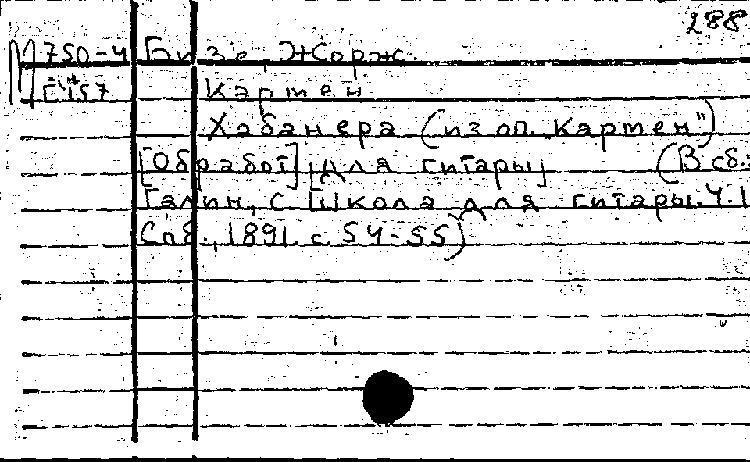 288
М 750-4 Бизе, Жорж.
Кармен
Хабанера (из оп. Кармен")
[Обработ] для гитары] (В сб.:
Галин, С. Школа для гитары. Ч. 1
Спб., 1891. с. 54-55)